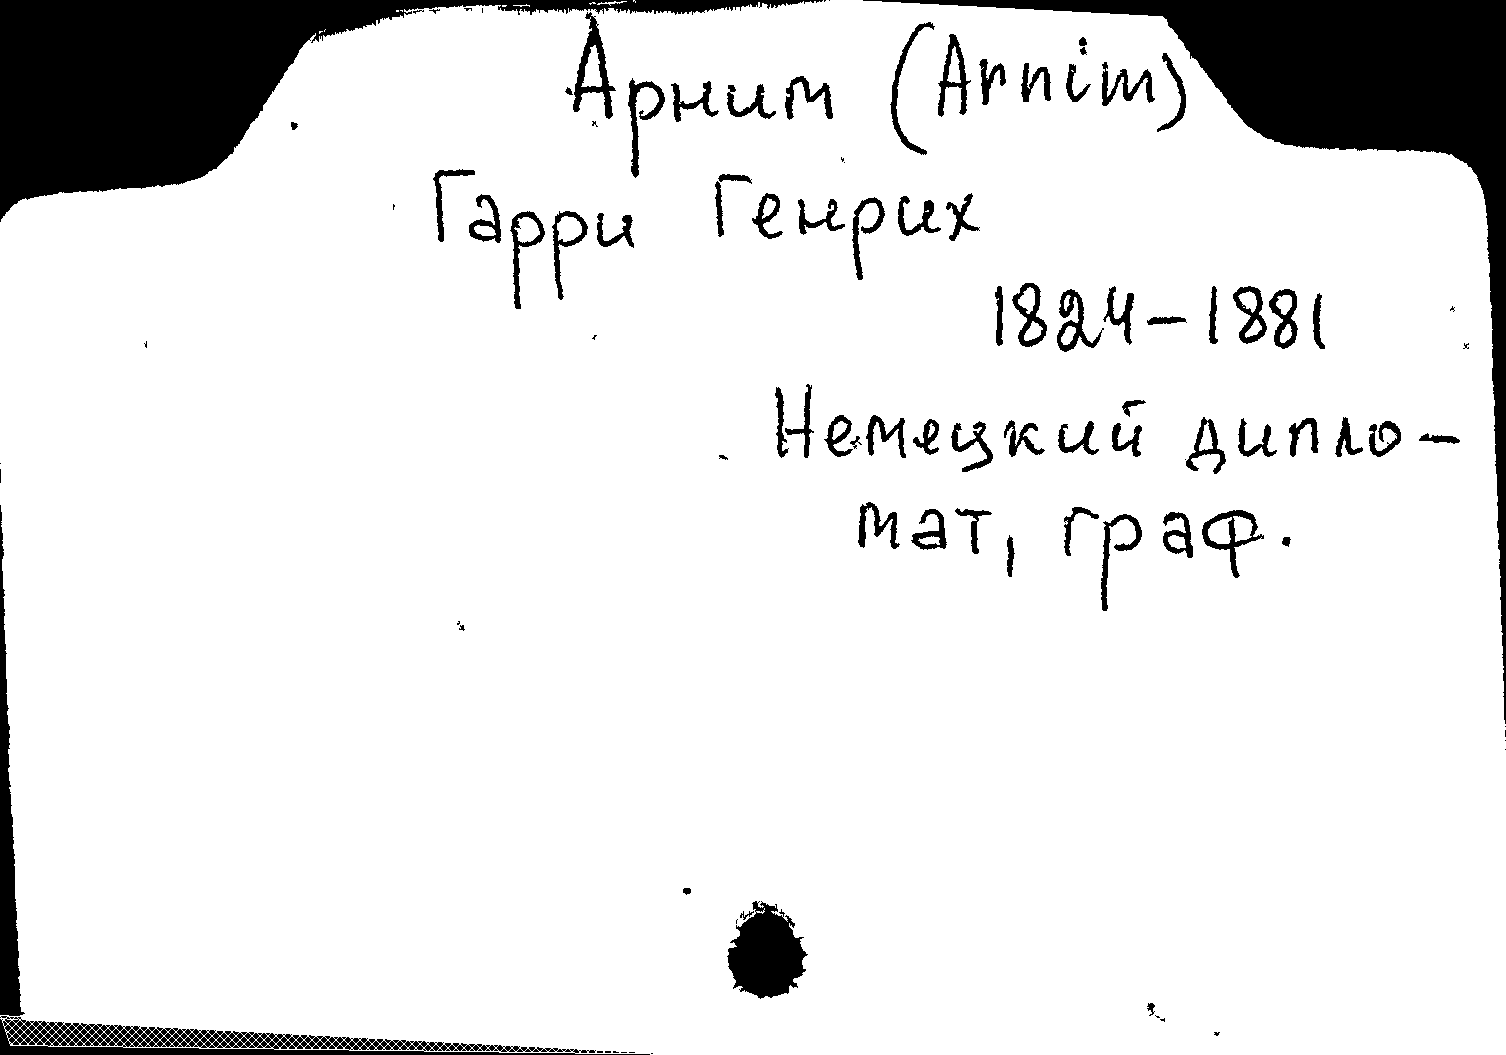 Арним (Arnim)
Гарри Генрих
1824-1881
Немецкий дипло-
мат, граф.